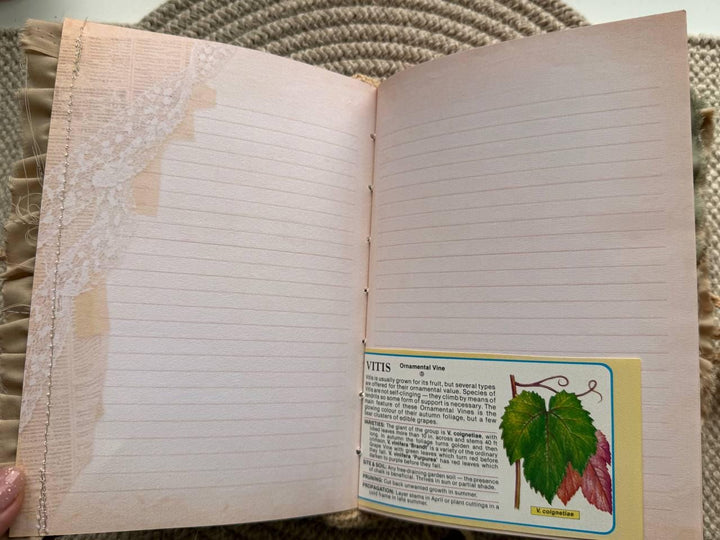 VITIS Ornamental Vine
Vitis is usually grown for its fruit, but several types
are offered for their ornamental value. Species of
Vitis are not self-clinging — they climb by means of
tendrils so some form of support is necessary. The
main feature of these Ornamental Vines is the
glowing colour of their autumn foliage, but a few
bear clusters of edible grapes.
VARIETIES: The giant of the group is V. coignetiae, with
lobed leaves more than 10 in. across and stems 40 ft
long. In autumn the foliage turns golden and then
crimson. V. vinifera 'Brandt' is a variety of the ordinary
Grape Vine with green leaves which turn red before
they fall. V. vinifera 'Purpurea' has red leaves which
darken to purple before they fall.
SITE & SOIL: Any free-draining garden soil — the presence
of chalk is beneficial. Thrives in sun or partial shade.
PRUNING: Cut back unwanted growth in summer.
PROPAGATION: Layer stems in April or plant cuttings in a
cold frame in late summer.
V. coignetiae